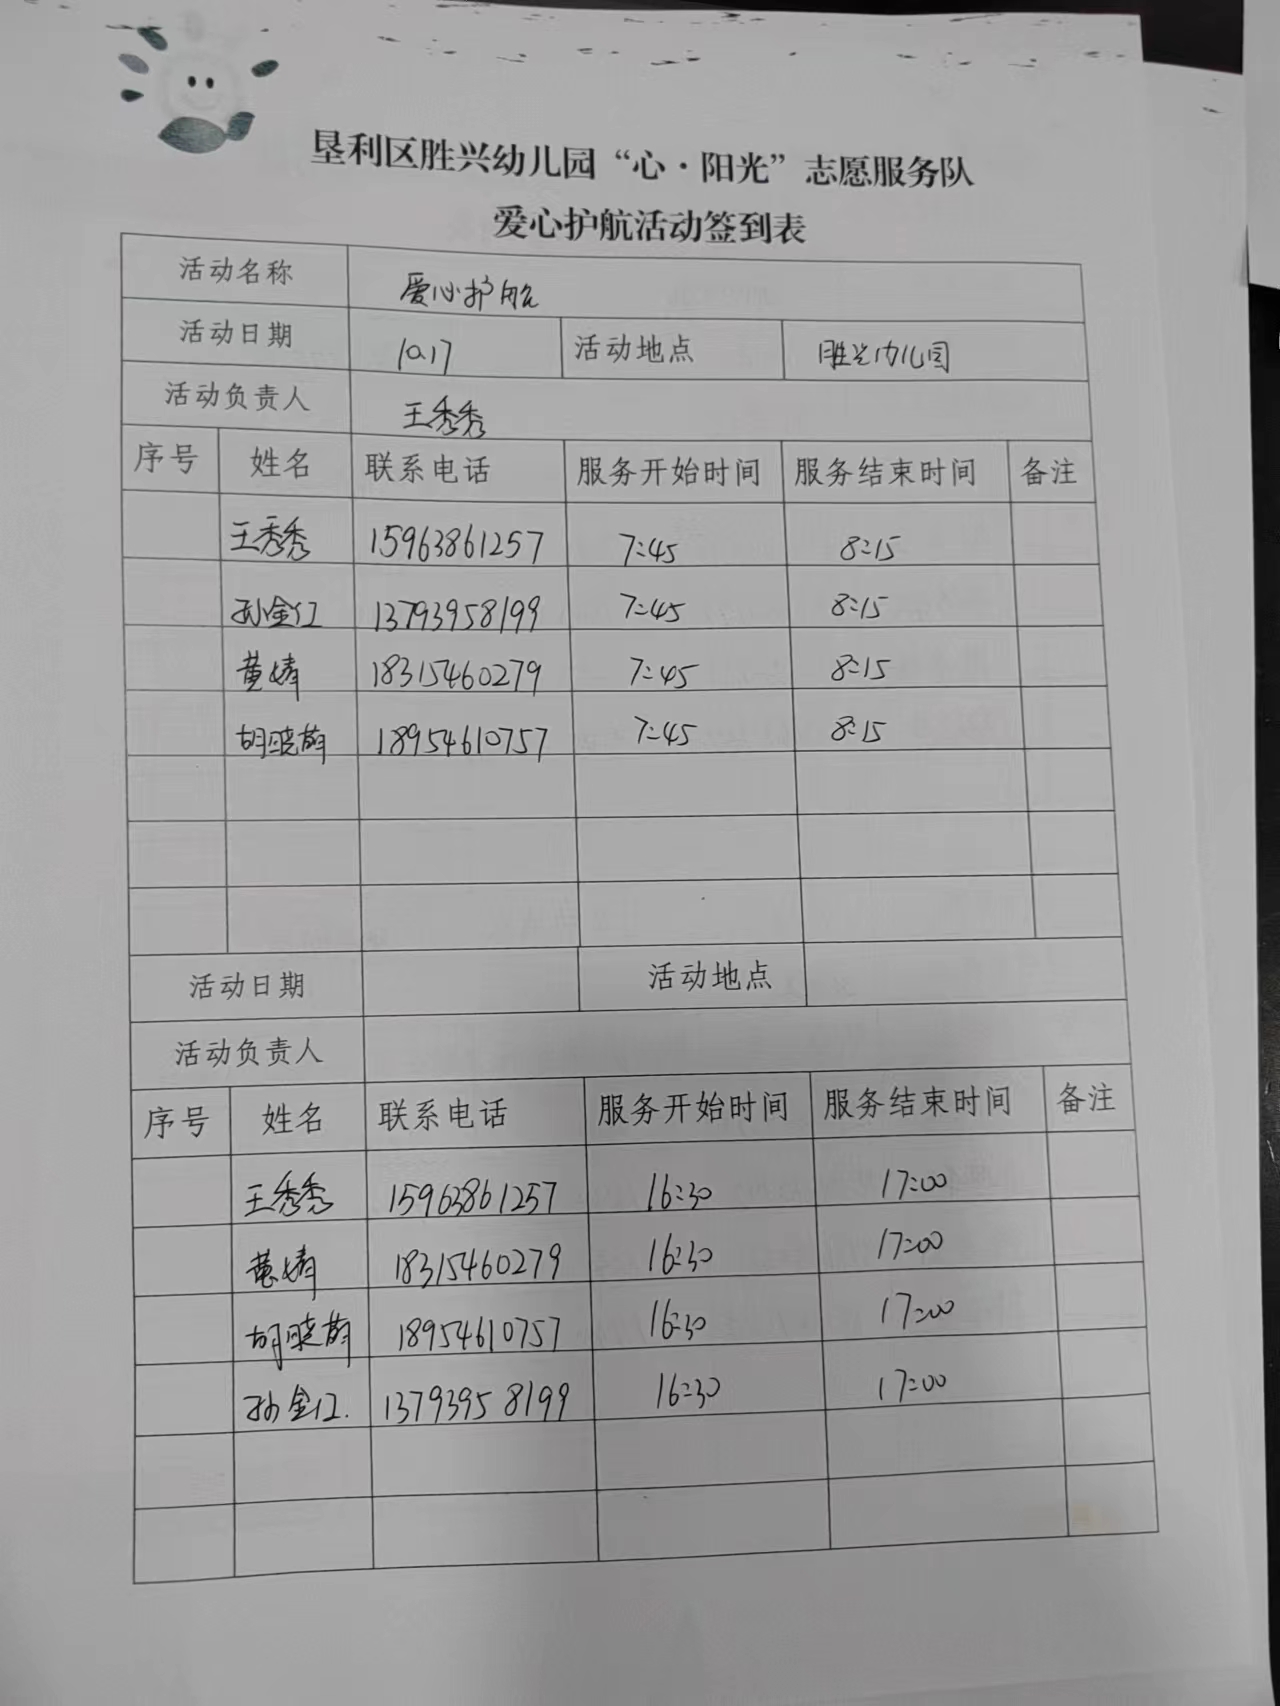 垦利区胜兴幼儿园“心·阳光”志愿服务队
爱心护航活动签到表
活动名称 爱心护航
活动日期 10.17 活动地点 胜兴幼儿园
活动负责人 王秀秀
序号 姓名 联系电话 服务开始时间 服务结束时间 备注
王秀秀 15963861257 7:45 8:15
孙金红 13793958199 7:45 8:15
黄婧 18315460279 7:45 8:15
胡晓萌 18954610757 7:45 8:15
活动日期 活动地点
活动负责人
序号 姓名 联系电话 服务开始时间 服务结束时间 备注
王秀秀 15963861257 16:30 17:00
黄婧 18315460279 16:30 17:00
胡晓萌 18954610757 16:30 17:00
孙金红. 13793958199 16:30 17:00